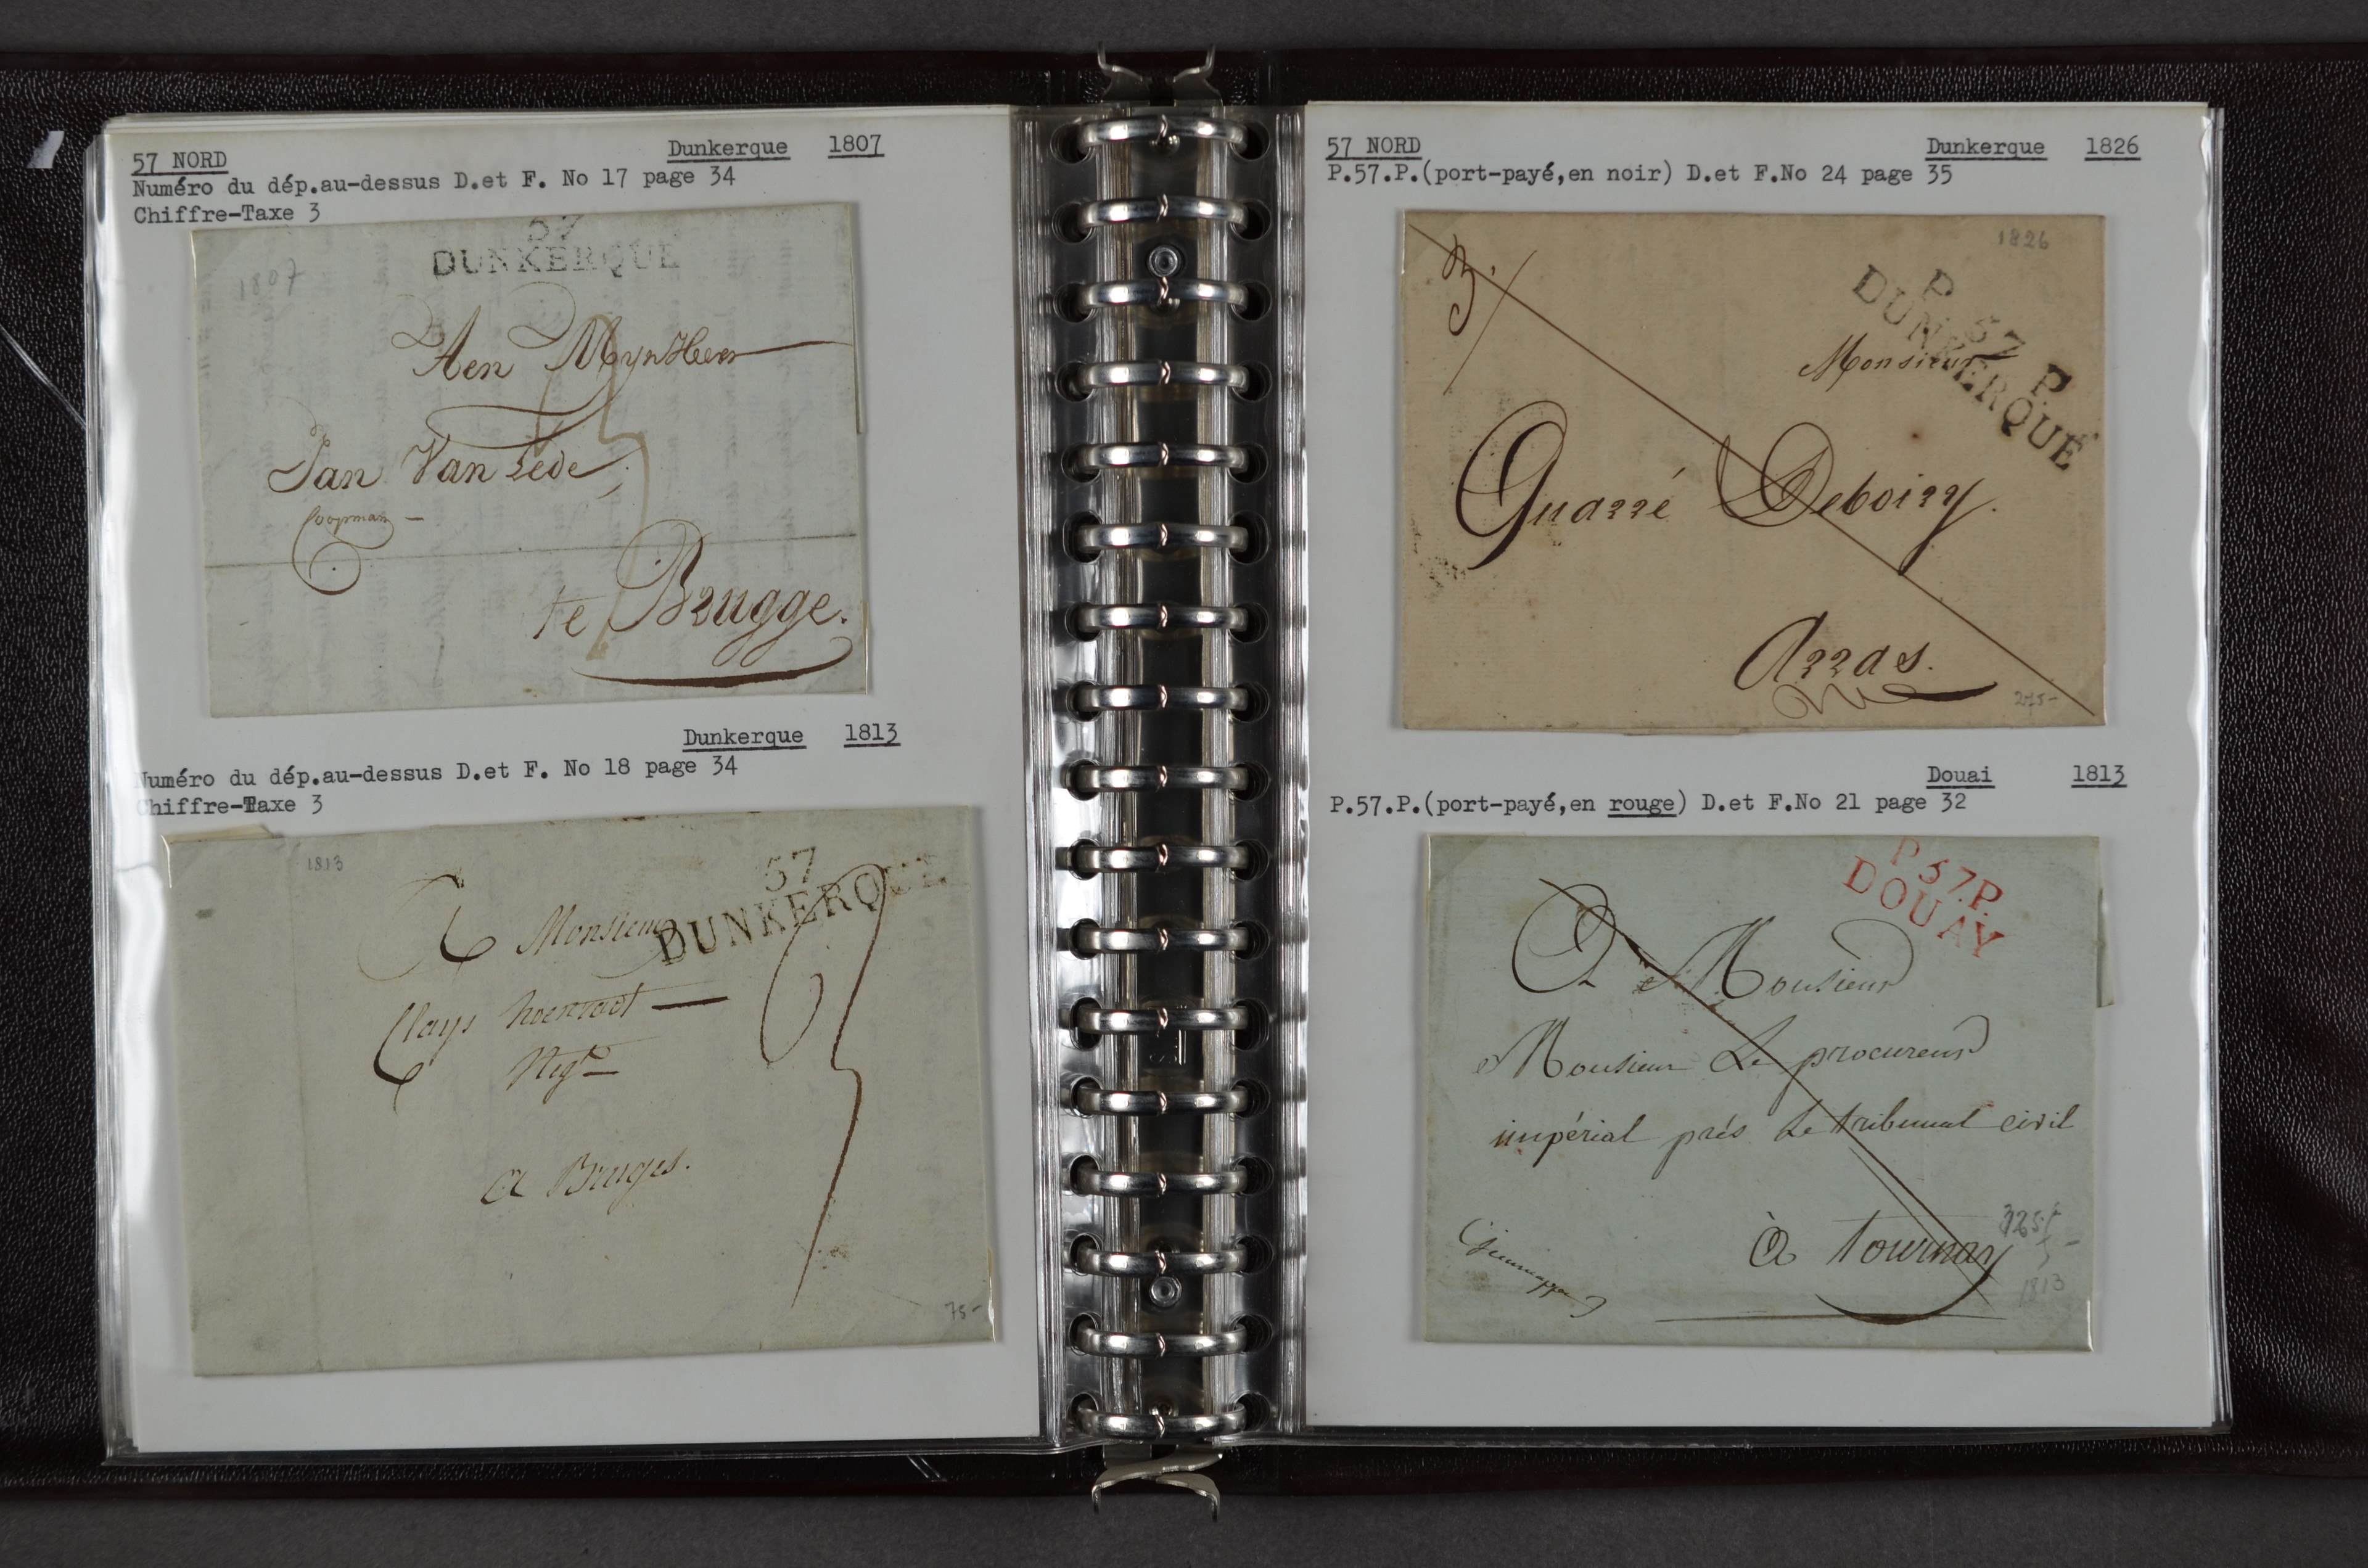 57 NORD
Dunkerque 1807
Numéro du dép.au-dessus D.et F. No 17 page 34
Chiffre-Taxe 3
57
DUNKERQUE
1807
Aen MynHeer
Jan Van Lede
Coopman
te Brugge.
Dunkerque 1813
Numéro du dép.au-dessus D.et F. No 18 page 34
Chiffre-Taxe 3
1813
57
DUNKERQUE
A Monsieur
Clays
Negt
a Bruges.
75-
57 NORD
Dunkerque 1826
P.57.P.(port-payé,en noir) D.et F.No 24 page 35
1826
P 57 P.
DUNKERQUE
Monsieur
Quarré Deboiry.
Arras.
Douai 1813
P.57.P.(port-payé,en rouge) D.et F.No 21 page 32
P.57.P.
DOUAY
A Monsieur
Monsieur Le procureur
impérial prés Le tribunal civil
à tournay
325
1813